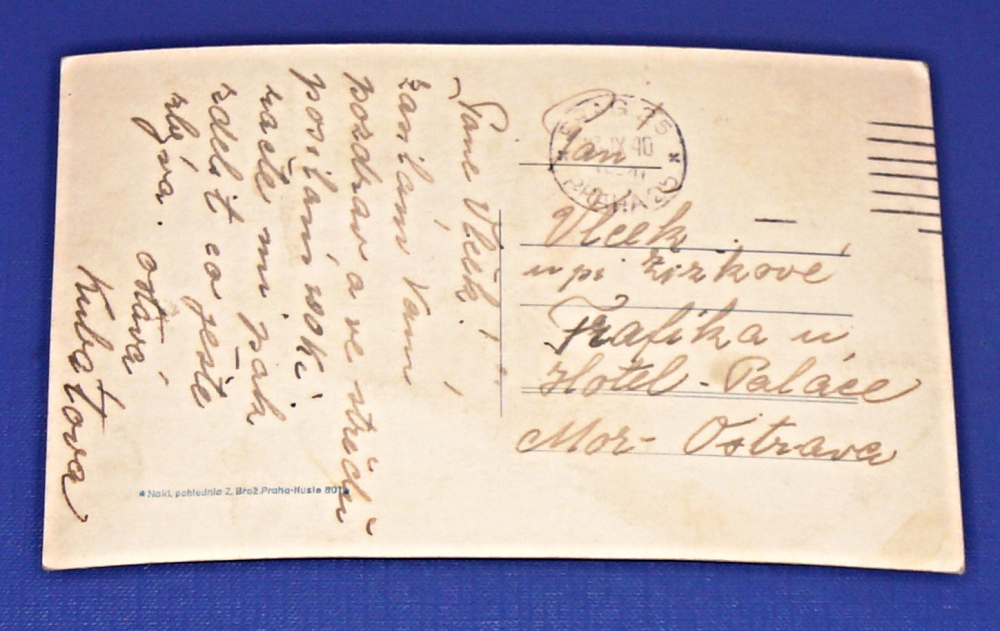 Pane Vlček!
zasílám Vám
pozdrav a ve stručí
posílám
račte mi pak
zdělit co ještě
zbývá. ostává
Kubátova
PRAG 25
IX 40
PRAHA
Jan
Vlček
u pí Žižkové
Trafika u
Hotel - Palace
Mor- Ostrava
★ Nakl. pohlednic Z. Brož. Praha-Nusle